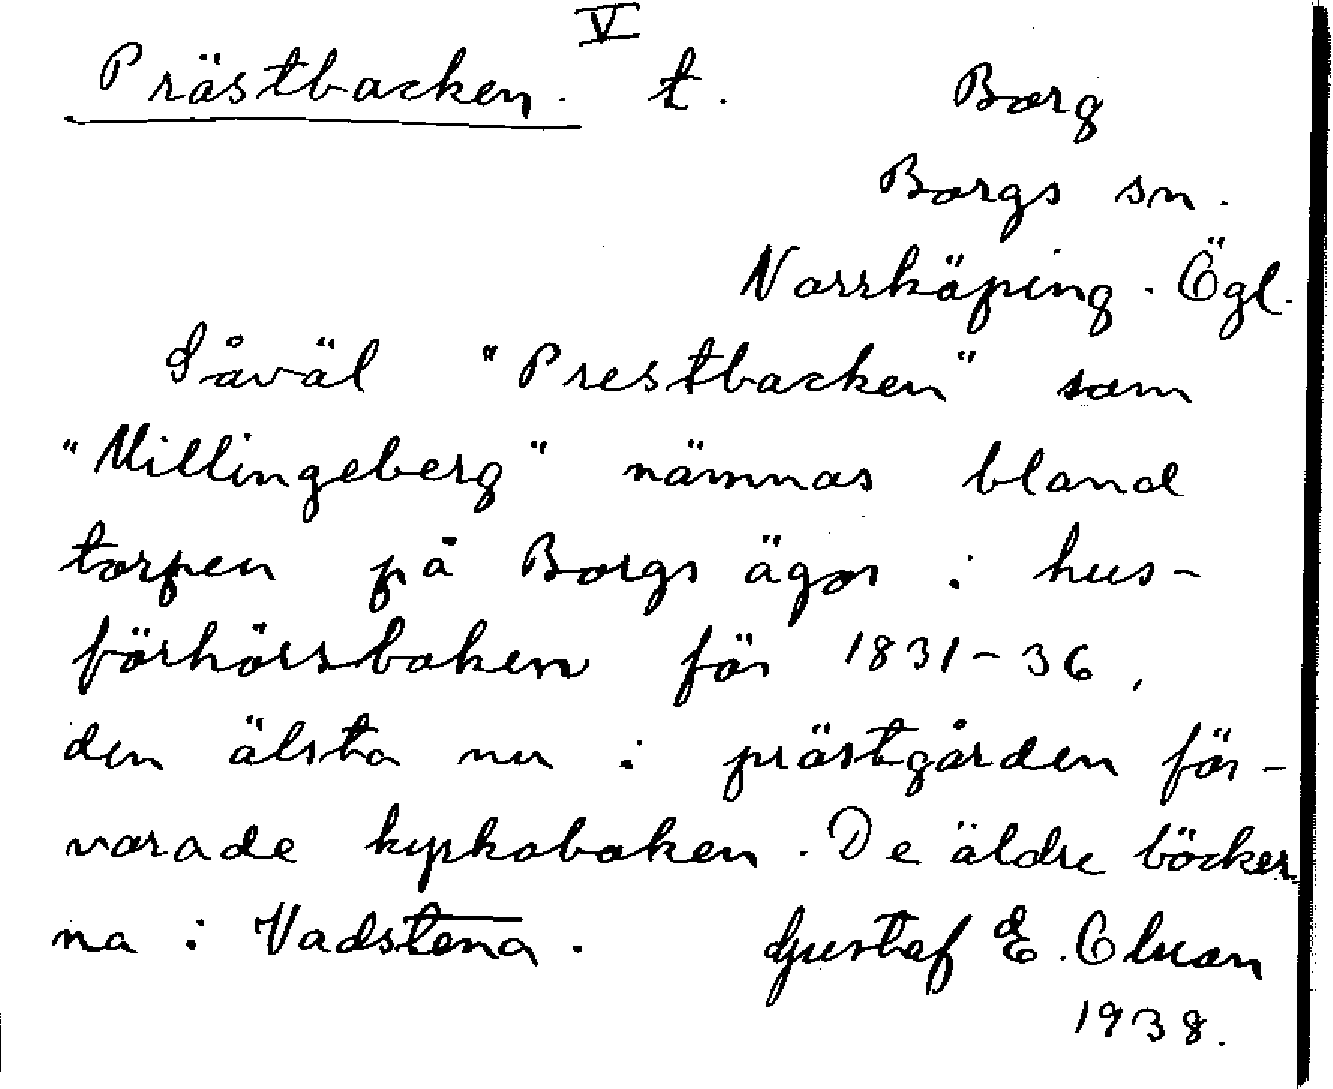 V
Prästbacken. t. Borg
Borgs sn.
Norrköping. Ögl.
Såväl "Prestbacken" som
"Millingeberg" nämnas bland
torpen på Borgs ägor i hus-
förhörsboken för 1831-36,
den älsta nu i prästgården för-
varade kyrkoboken. De äldre böcker
na i Vadstena. Gustaf E.
1938.